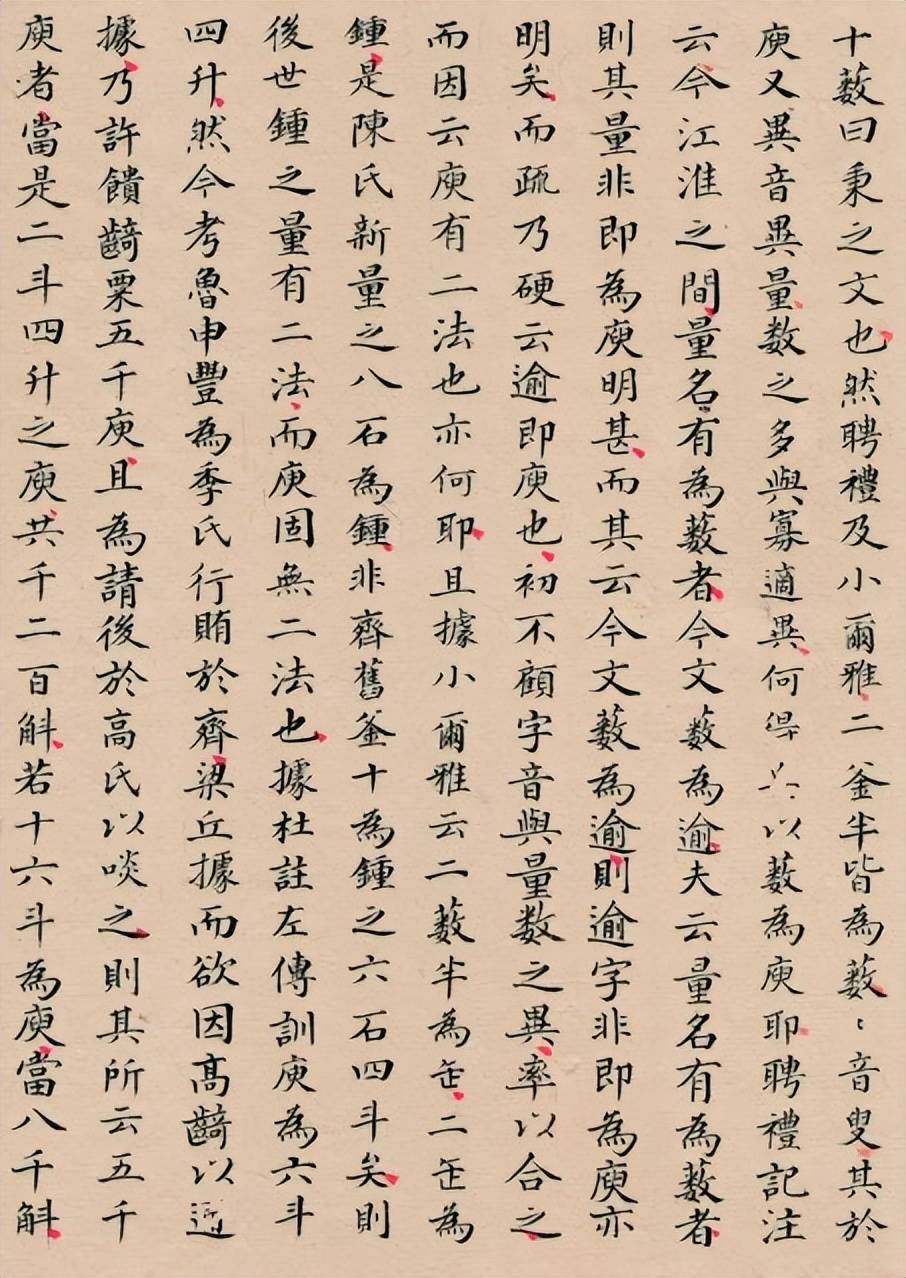 十藪曰秉之文也然聘禮及小爾雅二釜半皆為藪〻音叟其於
庾又異音異量数之多與寡適異何以藪為庾耶聘禮記注
云今江淮之間量名有為藪者今文藪為逾夫云量名有為藪者
則其量非即為庾明甚而其云今文藪為逾則逾字非即為庾亦
明矣而疏乃硬云逾即庾也初不顧字音與量数之異率以合之
而因云庾有二法也亦何耶且據小爾雅云二藪半為缶二缶為
鍾是陳氏新量之八石為鍾非齊舊釜十為鍾之六石四斗矣則
後世鍾之量有二法而庾固無二法也據杜註左傳訓庾為六斗
四升然今考魯申豐為季氏行賄於齊梁丘據而欲因高齮以
據乃許饋齮粟五千庾且為請後於高氏以啖之則其所云五千
庾者當是二斗四升之庾共千二百斛若十六斗為庾當八千斛